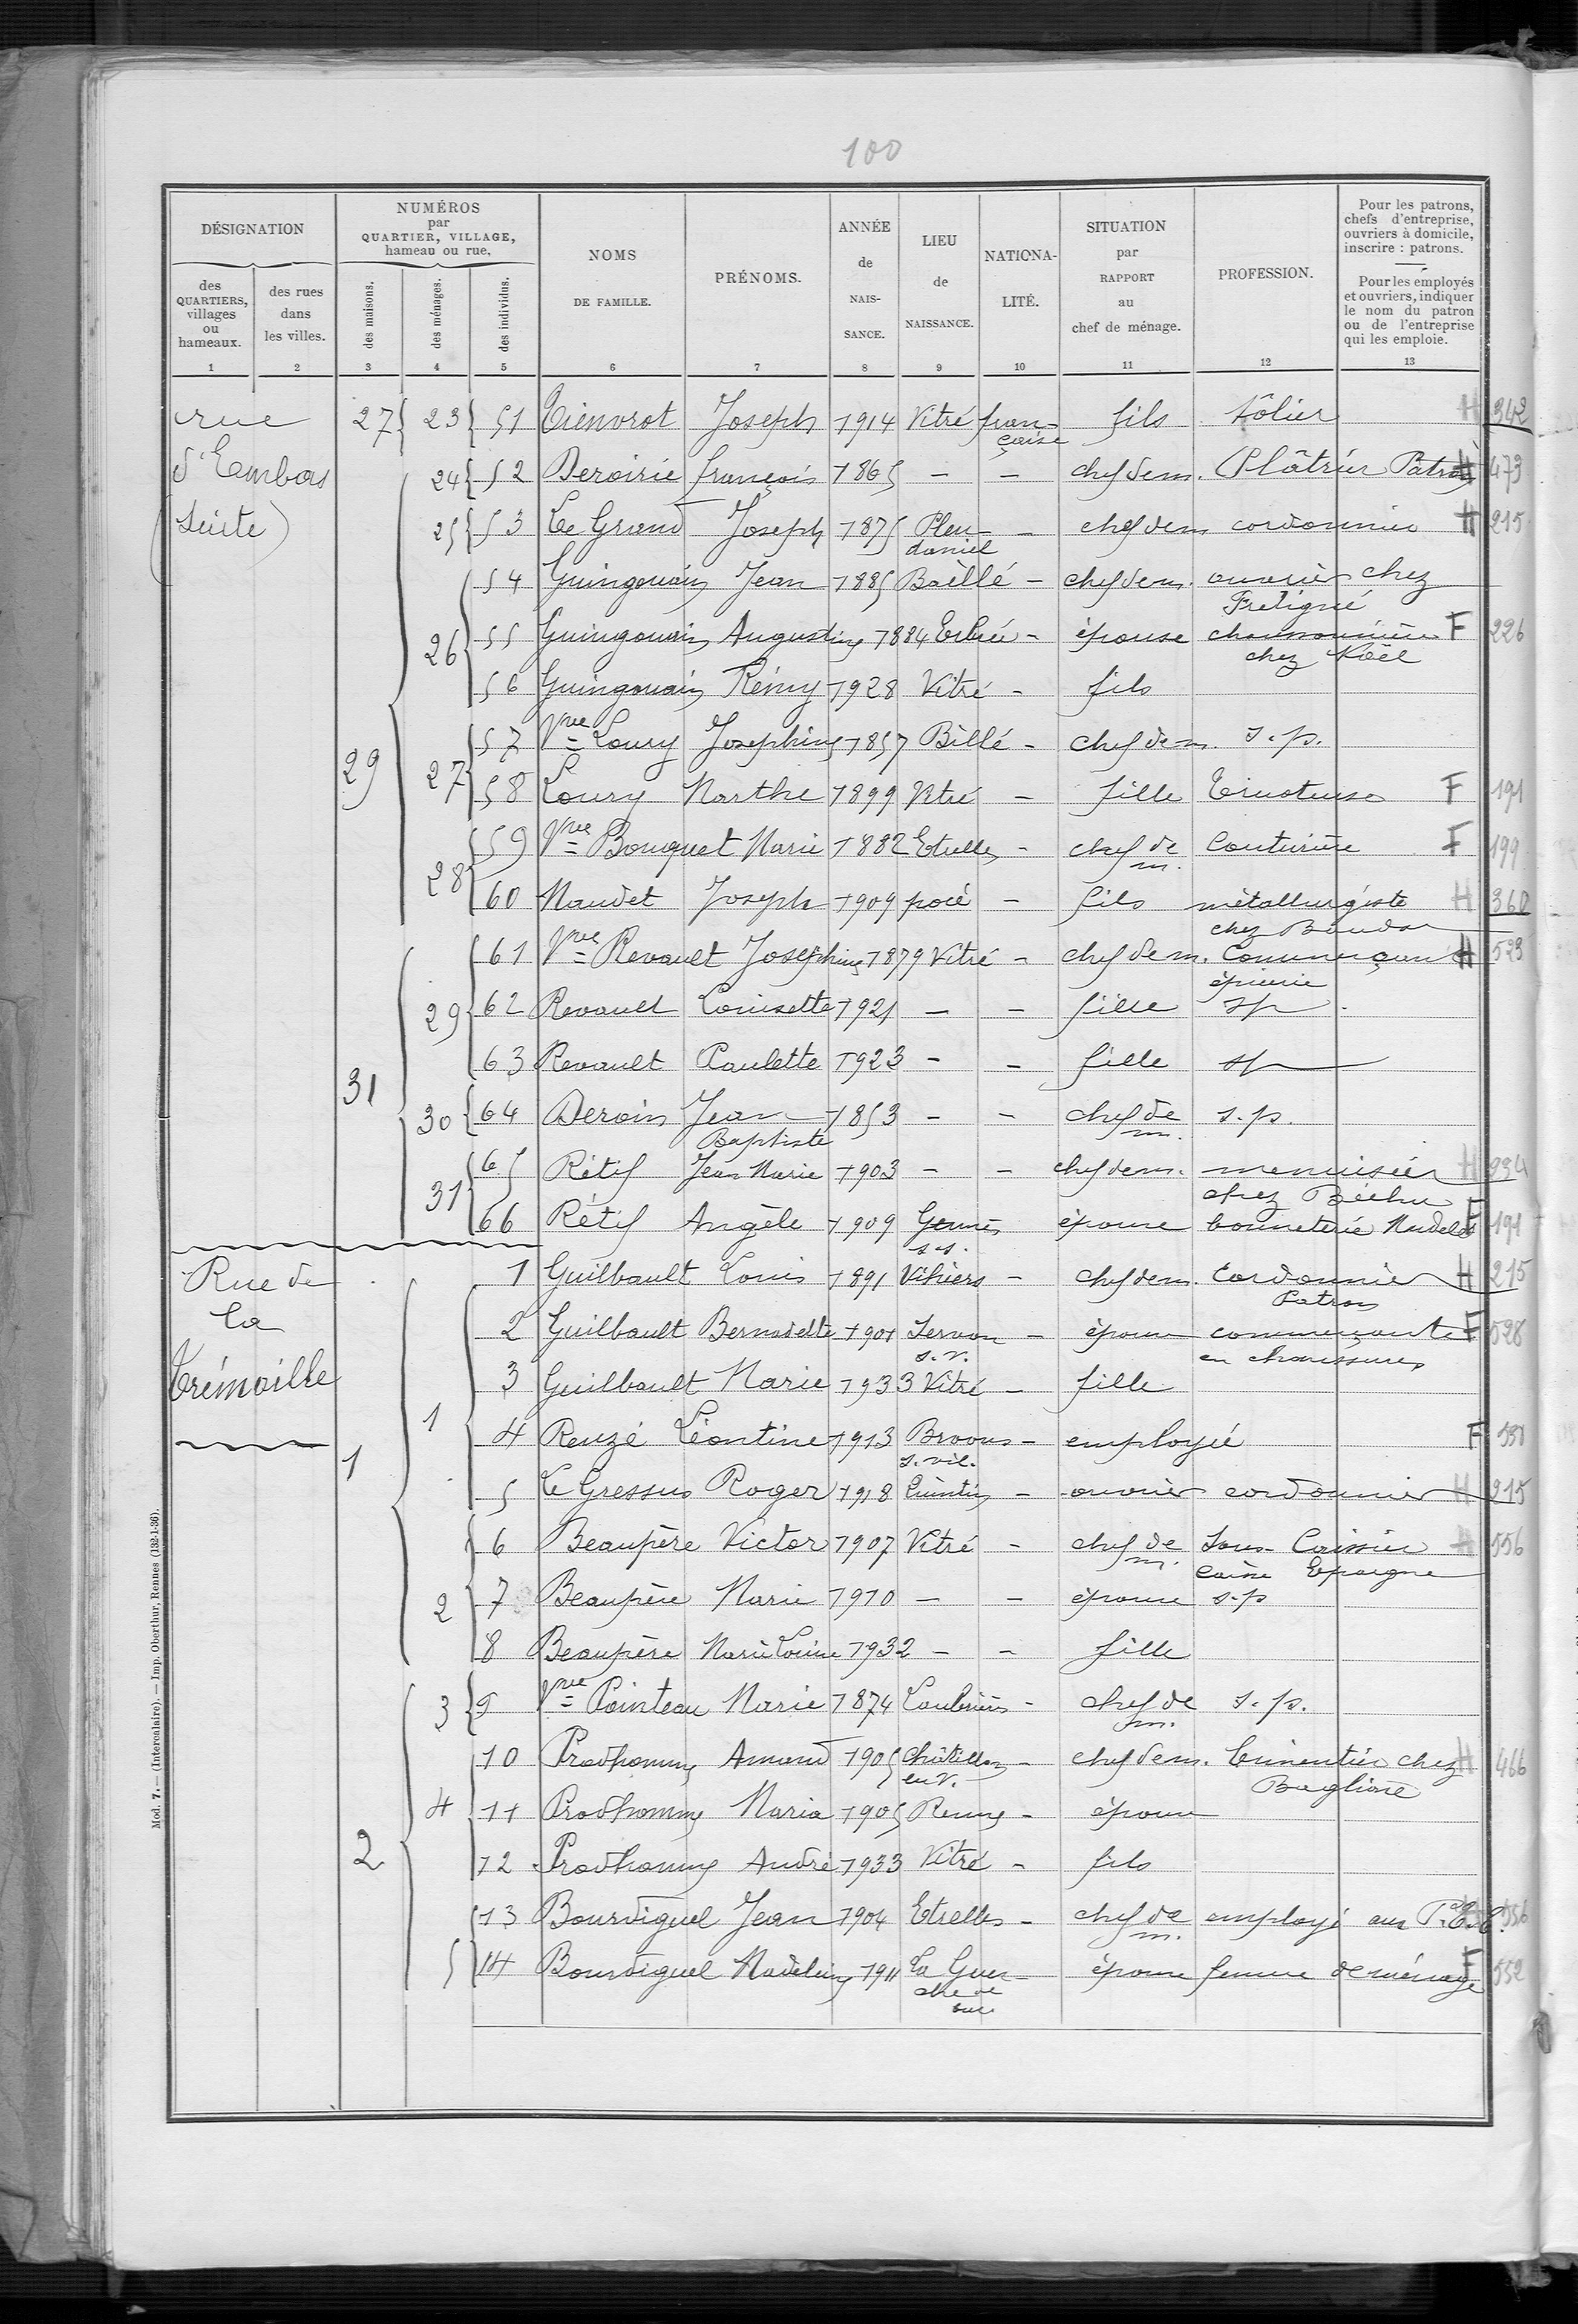 100
DÉSIGNATION
des QUARTIERS, villages ou hameaux.
des rues dans les villes.
NUMÉROS par QUARTIER, VILLAGE, hameau ou rue.
des maisons.
des ménages.
des individus.
NOMS DE FAMILLE.
PRÉNOMS.
ANNÉE de NAIS-SANCE.
LIEU de NAISSANCE.
NATIONA-LITÉ.
SITUATION par RAPPORT au chef de ménage.
PROFESSION.
Pour les patrons, chefs d'entreprise, ouvriers à domicile, inscrire : patrons.
Pour les employés et ouvriers, indiquer le nom du patron ou de l'entreprise qui les emploie.
1 2 3 4 5 6 7 8 9 10 11 12 13
rue 27 23 51 Joseph 1914 Vitré fran-çaise fils tôlier H 342
24 52 françois 1865 - - chef de m. Plâtrier Patron H 473
(suite) 25 53 Le Grand Joseph 1875 Pleu-daniel - chef de m cordonnier H 215
54 Guingouain Jean 1885 Baillé - chef de m. ouvrier chez Fretigné
26 55 Guingouain Augustine 1884 Erbrée - épouse chaussonnière chez Noël F 226
56 Guingouain Rémy 1928 Vitré - fils
29 27 57 Vve Loury Josephine 1857 Billé - chef de m. s.p.
58 Loury Marthe 1899 Vitré - fille Tricoteuse F 191
28 59 Vve Bouquet Marie 1882 Etrelles - chef de m. Couturière F 199
60 Naudet Joseph 1909 pocé - fils métallurgiste chez H 360
61 Vve Revault Josephine 1879 Vitré - chef de m. Commerçante épicerie H 523
29 62 Revault Louisette 1921 - - fille sp
63 Revault Paulette 1923 - - fille sp
31 30 64 Deroin Jean Baptiste 1853 - - chef de m. s.p.
31 65 Rétif Jean Marie 1903 - - chef de m. menuisier chez Béchu H 234
66 Rétif Angèle 1909 Gennes s.s. épouse bonneterie F 191
Rue de La Trémoille
1 Guilbault Louis 1891 Vihiers - chef de m. Cordonnier Patron H 215
2 Guilbault Bernadette 1901 Servon s.v. - épouse commerçante en chaussures F 528
3 Guilbault Marie 1933 Vitré - fille
1 4 Reuzé Léontine 1913 Broons s. vil. - employée F 531
1 5 Le Gressus Roger 1918 Quintin - ouvrier cordonnier H 215
6 Beaupère Victor 1907 Vitré - chef de m. Sous-Caissier Caisse Epargne H 556
2 7 Beaupère Marie 1910 - - épouse s.p
8 Beaupère Marie Louise 1932 - - fille
3 9 Vve Pointeau Marie 1874 - chef de m. s.p.
10 Prodhomme Amand 1905 Châtillon en V. - chef de m. Cimentier chez Baglione H 466
4 11 Prodhomme Maria 1905 Rennes - épouse
2 12 Prodhomme André 1933 Vitré - fils
13 Bourdiguel Jean 1904 Etrelles - chef de m. employé aux P.T.T. 556
5 14 Bourdiguel Madeleine 1911 La Guer-che de épouse femme de ménage F 552
Mod. 7. — (Intercalaire). — Imp. Oberthur, Rennes (132-1-36).